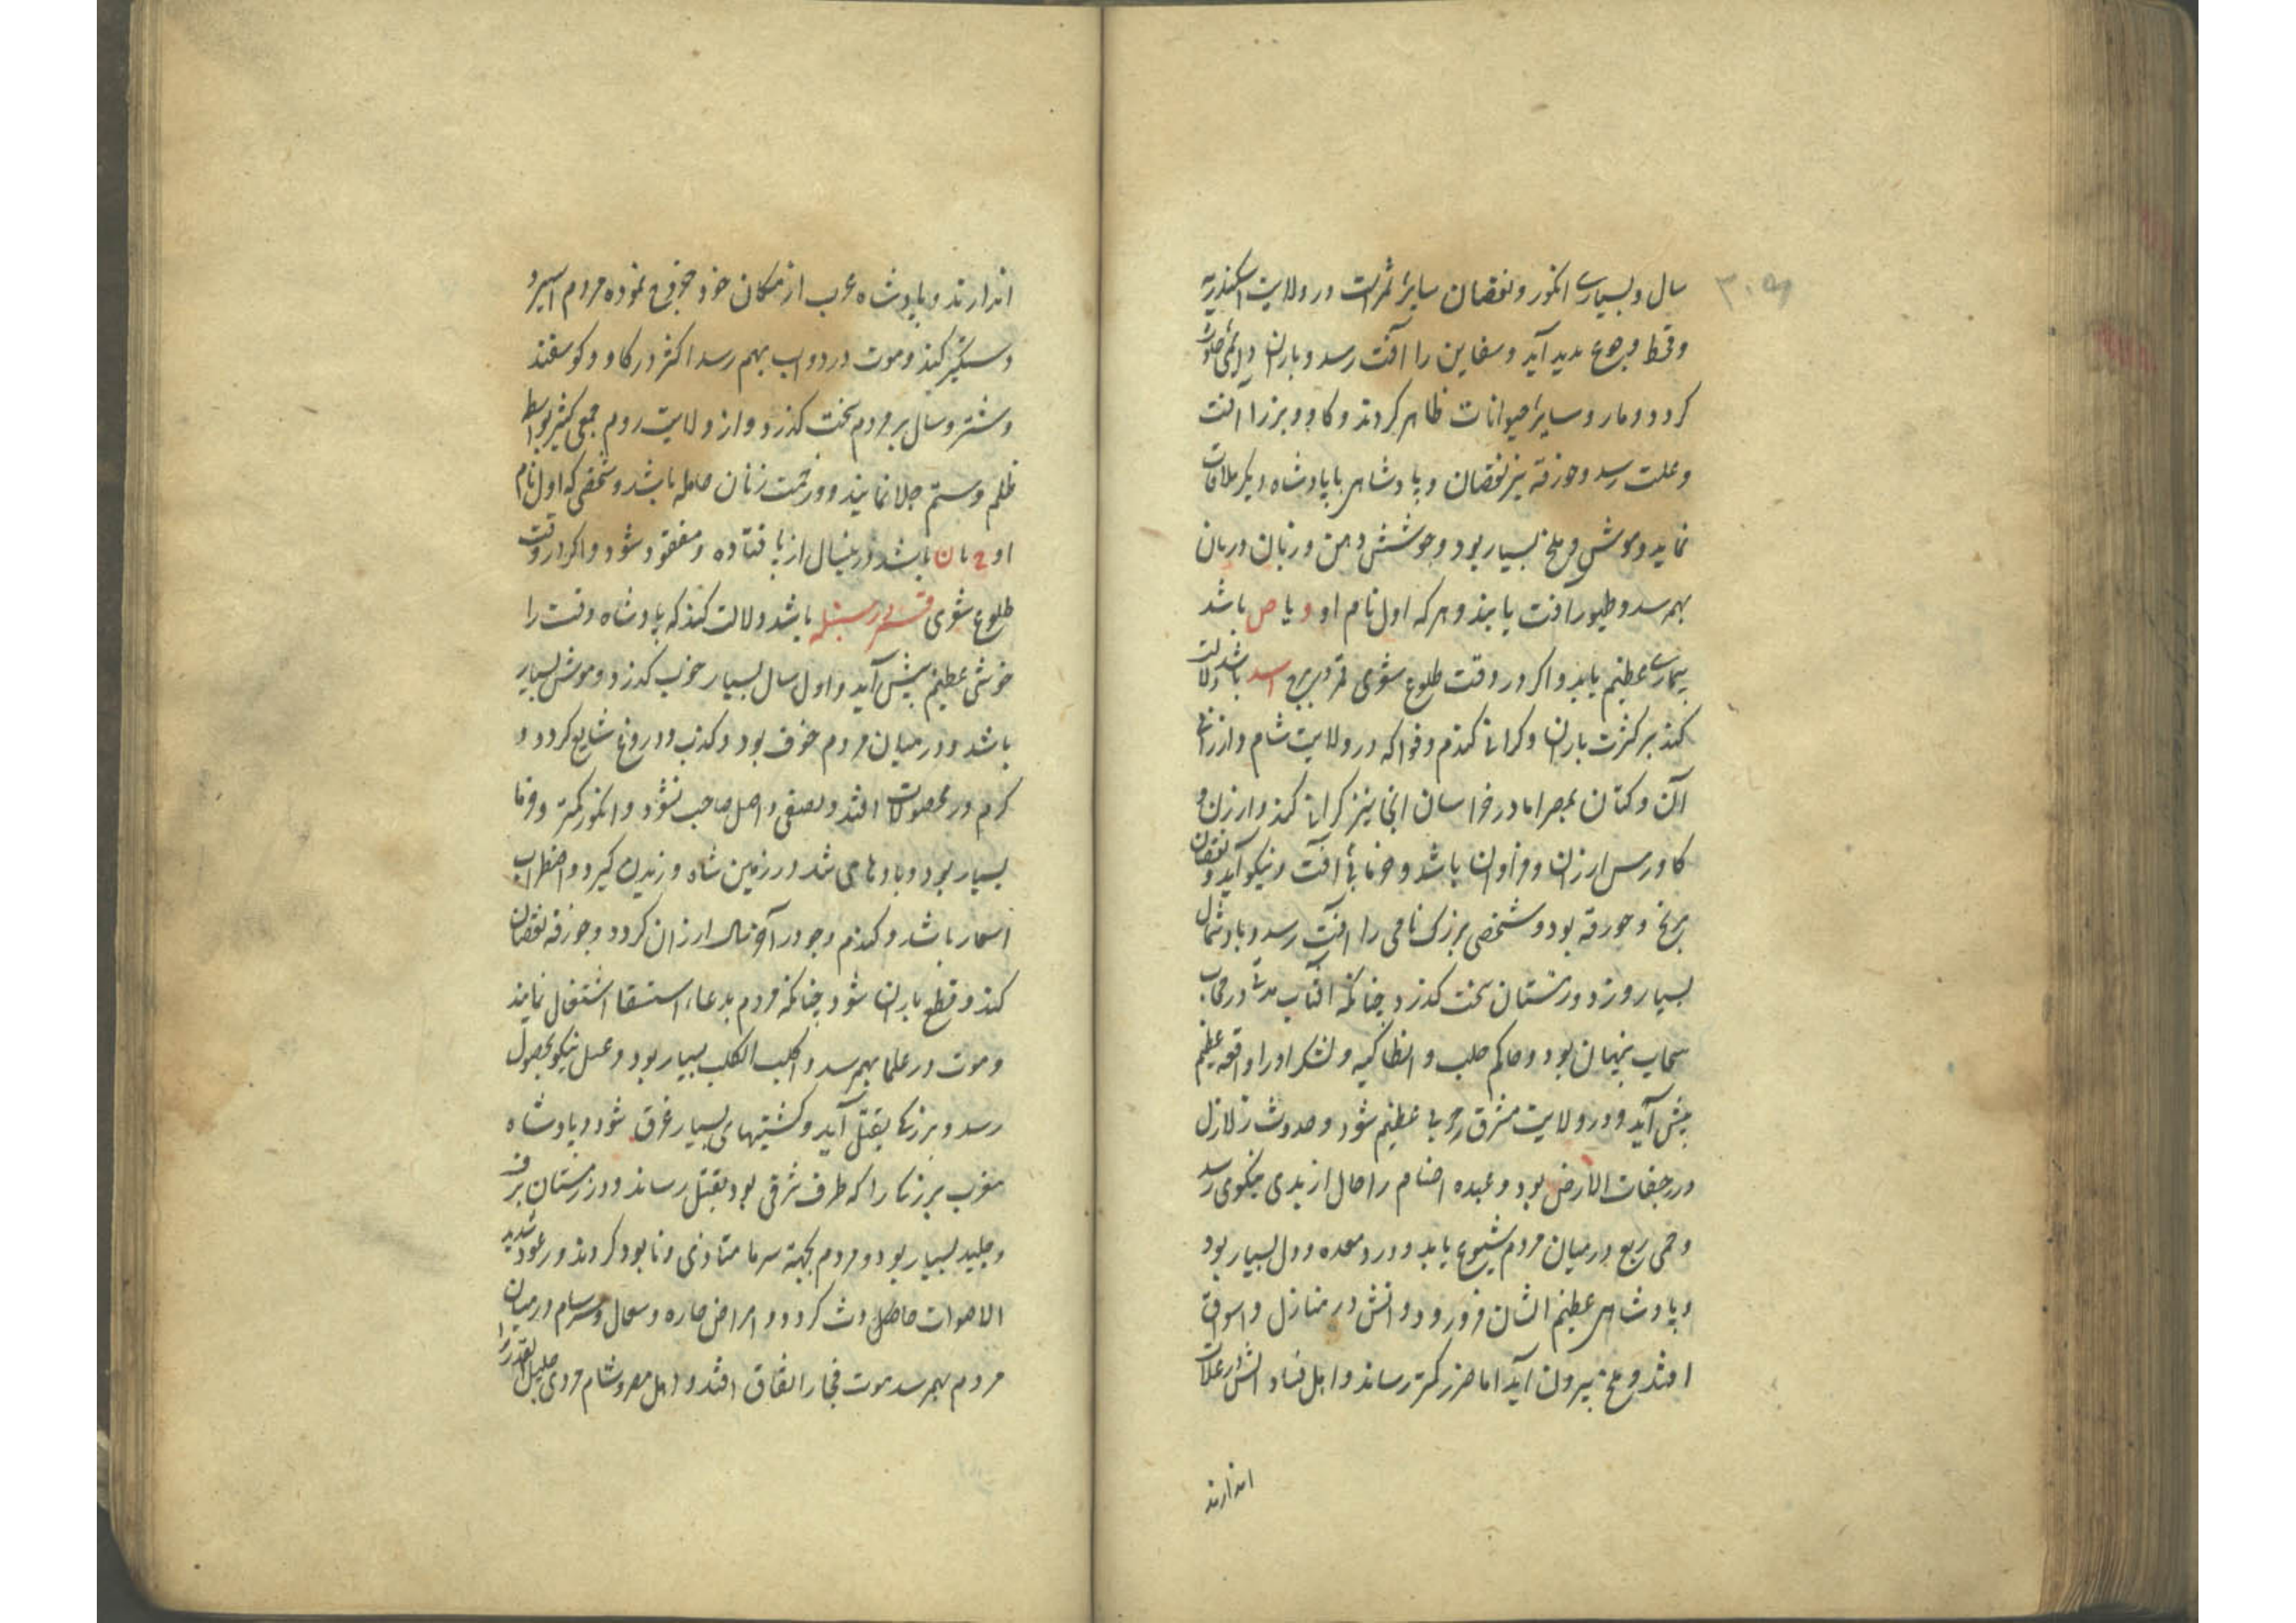 ۳۰۵
سال و بسیاری انکور و نقصان سایر ثمرات در ولایت اسکندریه
و قحط و جوع بدید آید و سفاین را آفت رسد و باران
کردد و مار و سایر حیوانات ظاهر کردند و کاو و بز را آفت
و علت رسد و جوزقه نیز نقصان و پادشاهی با پادشاه دیکر ملاقات
نماید و موش و ملخ بسیار بود و جوشش دهن و زبان در
بهم رسد و طیور آفت یابند و هر که اول نام او و یا ص باشد
بیماری عظیم یابد و اکر در وقت طلوع شعری قمر در برج اسد باشد دلالت
کند بر کثرت باران و کرانی کندم و فواکه در ولایت شام و ارزانی
آن و کتان بمصر اما در خراسان کرانی کند و ارزن و
کاورس ارزان و فراوان باشد و خرما بی آفت و نیکو آید و نقصان
برنج و جوزقه بود و شخصی بزرک نامی را آفت رسد و باد شمال
بسیار وزد و زمستان سخت کذرد چنانکه آفتاب مدتی در حجاب
سحاب پنهان بود و حاکم حلب و انطاکیه و لشکر او را واقعه عظیم
پیش آید و در ولایت مشرق حربی عظیم شود و حدوث زلازل
و رجفات الارض بود و عبده اصنام را حال از بدی بنیکوی رسد
و حمی ربع در میان مردم شیوع یابد و درد معده و دل بسیار بود
و پادشاهی عظیم الشان فرو رود و آتش در منازل و اسواق
افتد و ملخ بیرون آید اما ضرر کمتر رساند و اهل فساد آتش در غلات
اندازند
اندازند و پادشاه عرب از مکان خود خروج نموده مردم اسیر و
دستکیر کند و موت در دواب بهم رسد اکثر در کاو و کوسفند
و شتر و سال بر مردم سخت کذرد و از ولایت روم جمعی کثیر بواسطه
ظلم و ستم جلا نمایند و زحمت زنان حامله باشد و شخصی که اول نام
او ح یا ن باشد درینسال از پا فتاده و مفقود شود و اکر در وقت
طلوع شعری قمر در سنبله باشد دلالت کند که پادشاه وقت را
خوشی عظیم پیش آید و اول سال بسیار خوب کذرد و موش بسیار
باشد و در میان مردم خوف بود و کذب و دروغ شایع کردد و
کرم در محصولات افتد و صیفی و اصل صاحب نشود و انکور کمتر و خرما
بسیار بود و بادهای تند در زمین شاه وزیدن کیرد و اضطراب
اسعار باشد و کندم و جو در آخر سال ارزان کردد و جوزقه نقصان
کند و قطع باران شود چنانکه مردم بدعاء استسقا اشتغال نمایند
و موت در علما بهم رسد و کلب الکلب بسیار بود و عسل نیکو بحصول
رسد و بزرکی بقتل آید و کشتیهای بسیار غرق شود و پادشاه
مغرب بزرکی را که طرف شرقی بود بقتل رساند و در زمستان برف
و جلید بسیار بود و مردم بجهة سرما متاذی و نابود کردند و رعود شدید
الاصوات حادث کردد و امراض حاره و سعال و سرسام در میان
مردم بهم رسد موت فجا را اتفاق افتد و اهل مصر و شام مردی جلیل القدر را